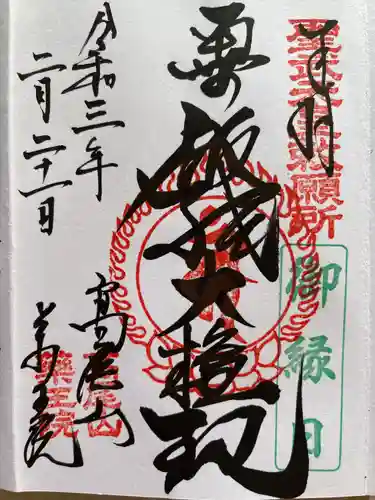 奉拝
聖武天皇勅願所
御縁日
飯縄大権現
令和三年
二月二十一日
高尾山
薬王院
高尾山
薬王院